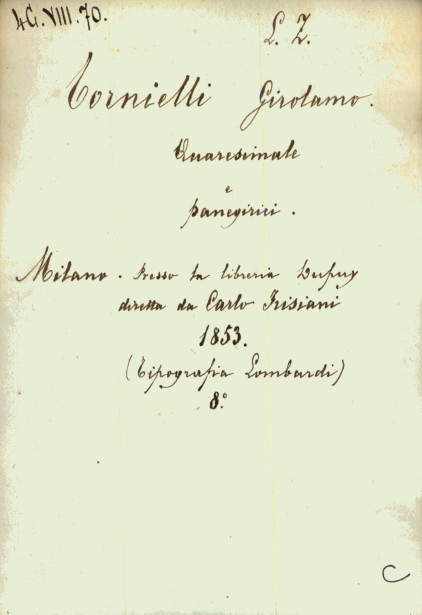 4G.VIII.70.
L. Z.
Tornielli Girolamo.
Quaresimale
e
panegirici.
Milano. Presso la libreria Dupuy
diretta da Carlo Frisiani
1853.
(Tipografia Lombardi)
8º
C